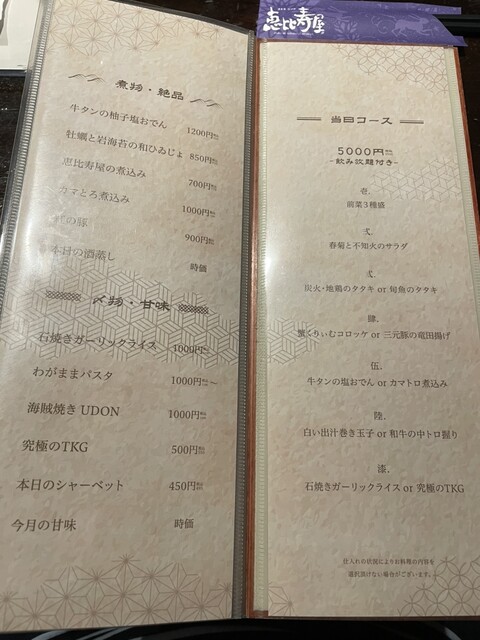 煮物・絶品
牛タンの柚子塩おでん 1200円
牡蠣と岩海苔の和ひゐじょ 850円
恵比寿屋の煮込み 700円
カマとろ煮込み 1000円
の豚 900円
本日の酒蒸し 時価
〆物・甘味
石焼きガーリックライス 1000円
わがままパスタ 1000円〜
海賊焼き UDON 1000円
究極のTKG 500円
本日のシャーベット 450円
今月の甘味 時価
恵比寿屋
当日コース
5000円
-飲み放題付き-
壱.
前菜3種盛
弐.
春菊と不知火のサラダ
炭火・地鶏のタタキ or 旬魚のタタキ
肆.
蟹くりぃむコロッケ or 三元豚の竜田揚げ
伍.
牛タンの塩おでん or カマトロ煮込み
陸.
白い出汁巻き玉子 or 和牛の中トロ握り
漆.
石焼きガーリックライス or 究極のTKG
仕入れの状況によりお料理の内容を
選択頂けない場合がございます。